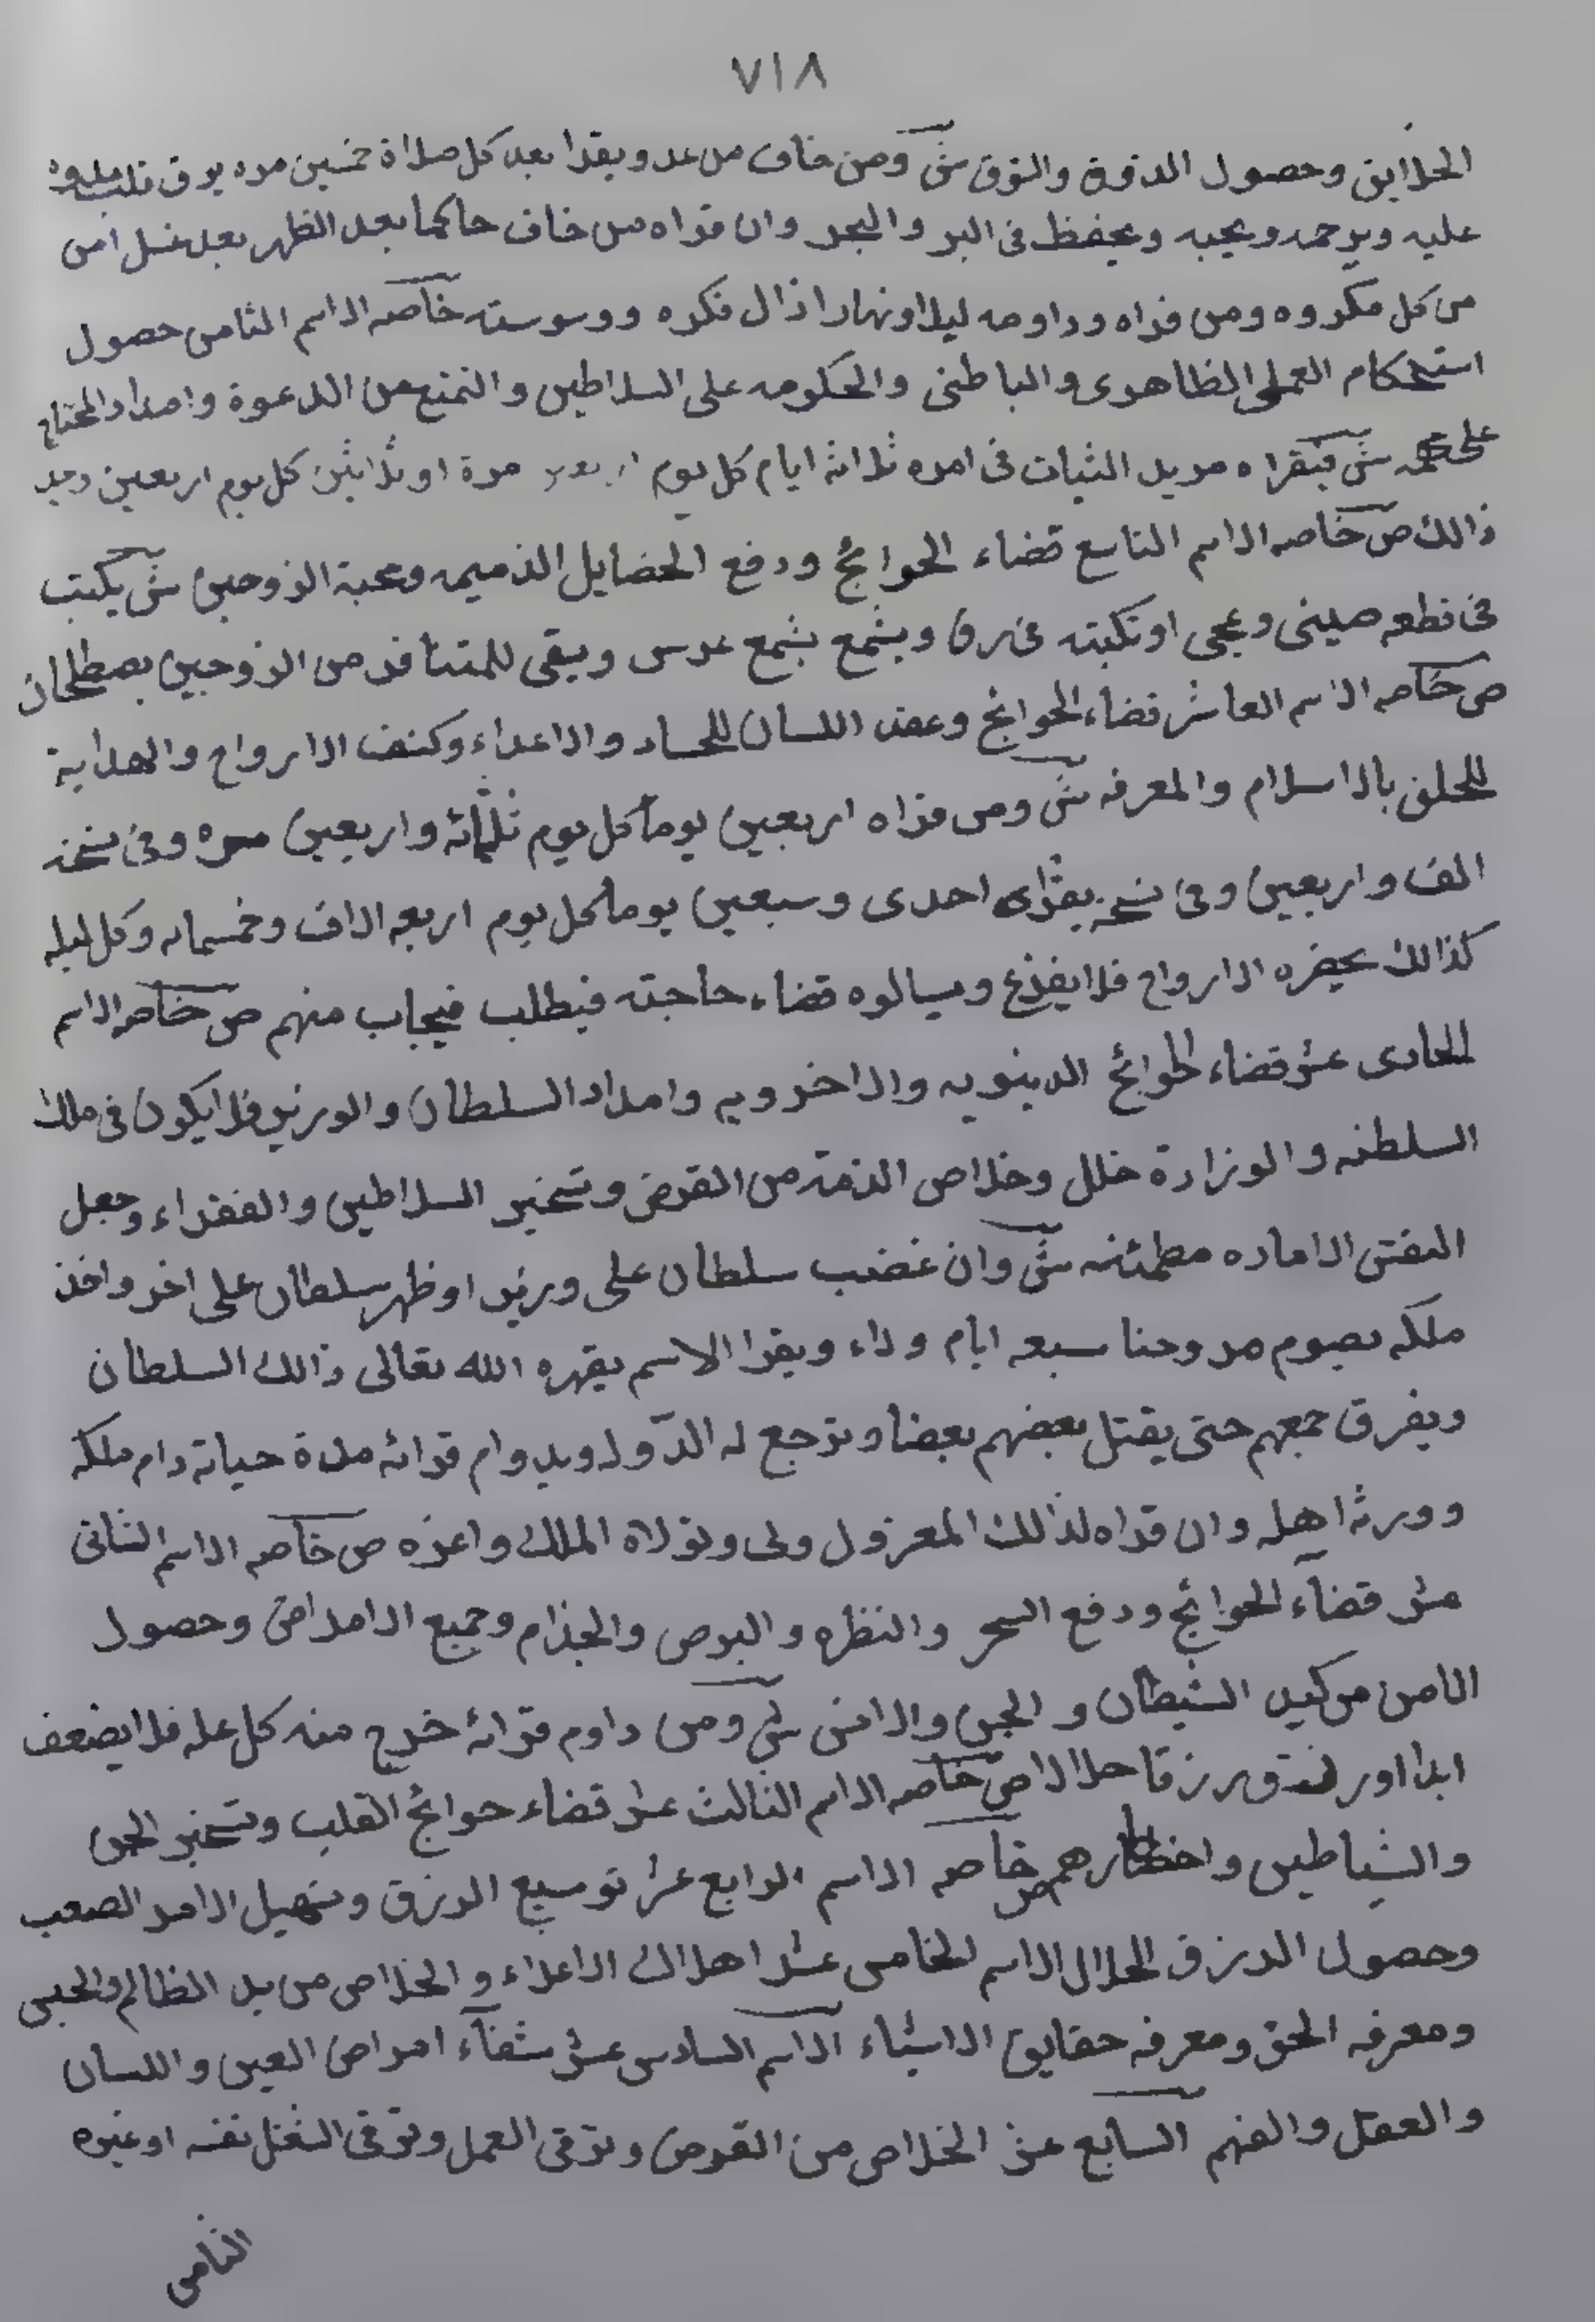 ٧١٨
الخلايق وحصول الدقوة والذوق شى ومن خاف من عدو يقرا بعد كل صلاة خمسين مره يرق قلب عدوه
عليه ويرحمه ويحبه ويحفظ فى البر والبحر وان قراه من خاف حاكما بعد الظهر بعد غسل امن
من كل مكروه ومن قراه وداومه ليلا ونهارا زال فكره ووسوسته خاصه الاسم الثامن حصول
استحكام العمل الظاهرى والباطنى والحكومه على السلاطين والتمتع من الدعوة وامداد المحتاج
على شى فيقراه مريد الثبات فى امره ثلاثه ايام كل يوم اربعين مرة او ثلاثين كل يوم اربعين وجد
ذالك ص خاصه الاسم التاسع قضاء الحوائج ودفع الخصايل الذميمه ومحبة الزوجين شى يكتب
فى قطعه صينى ويمحى او تكتبه فى رق ويشمع بشمع عروس ويبقى للمتنافر من الزوجين يصطلحان
ص خاصه الاسم العاشر قضاء الحوائج وعقد اللسان للحساد والاعداء وكشف الارواح والهداية
للخلق بالاسلام والمعرفه شى ومن قراه اربعين يوما كل يوم ثلثمائه واربعين مره وفى نسخه
الف واربعين وفى نسخه يقراه احدى وسبعين يوما كل يوم اربعه الاف وخمسمايه وكل ليله
كذالك يحضره الارواح فلا يفزع ويسالوه قضاء حاجته فيطلب فيجاب منهم ص خاصه الاسم
الحادى عشر قضاء الحوائج الدينويه والاخرويه وامداد السلطان والوزير فلا يكون فى ملك
السلطنه والوزارة خلل وخلاص الذمة من القرض وتسخير السلاطين والفقراء وجعل
النفس الاماره مطمئنه شى وان غضب سلطان على وزير او ظهر سلطان على اخر واخذ
ملكه يصوم مروحنا سبعه ايام ولاء ويقرا الاسم يقهره الله تعالى ذالك السلطان
ويفرق جمعهم حتى يقتل بعضهم بعضا وترجع له الدوله وبدوام قرائه مدة حياته دام ملكه
وورثه اهله وان قراه لذالك المعزول ولى وتولاه الملك واعزه ص خاصه الاسم الثانى
عشر قضاء الحوائج ودفع السحر والنظره والبرص والجذام وجميع الامراض وحصول
الامن من كيد الشيطان والجن والانس شى ومن داوم قرائه خرج منه كل عله فلا يضعف
ابدا او رزق رزقا حلالا ص خاصه الاسم الثالث عشر قضاء حوائج القلب وتسخير الجن
والشياطين واحضارهم ص خاصه الاسم الرابع عشر توسيع الرزق وتسهيل الامر الصعب
وحصول الرزق الحلال الاسم الخامس عشر اهلاك الاعداء والخلاص من يد الظالم والحبس
ومعرفه الحق ومعرفه حقايق الاشياء الاسم السادس عشر شفاء امراض العين واللسان
والعقل والفهم السابع عشر الخلاص من القرض وترقى العمل وترقى الشغل نفسه او غيره
الثامن